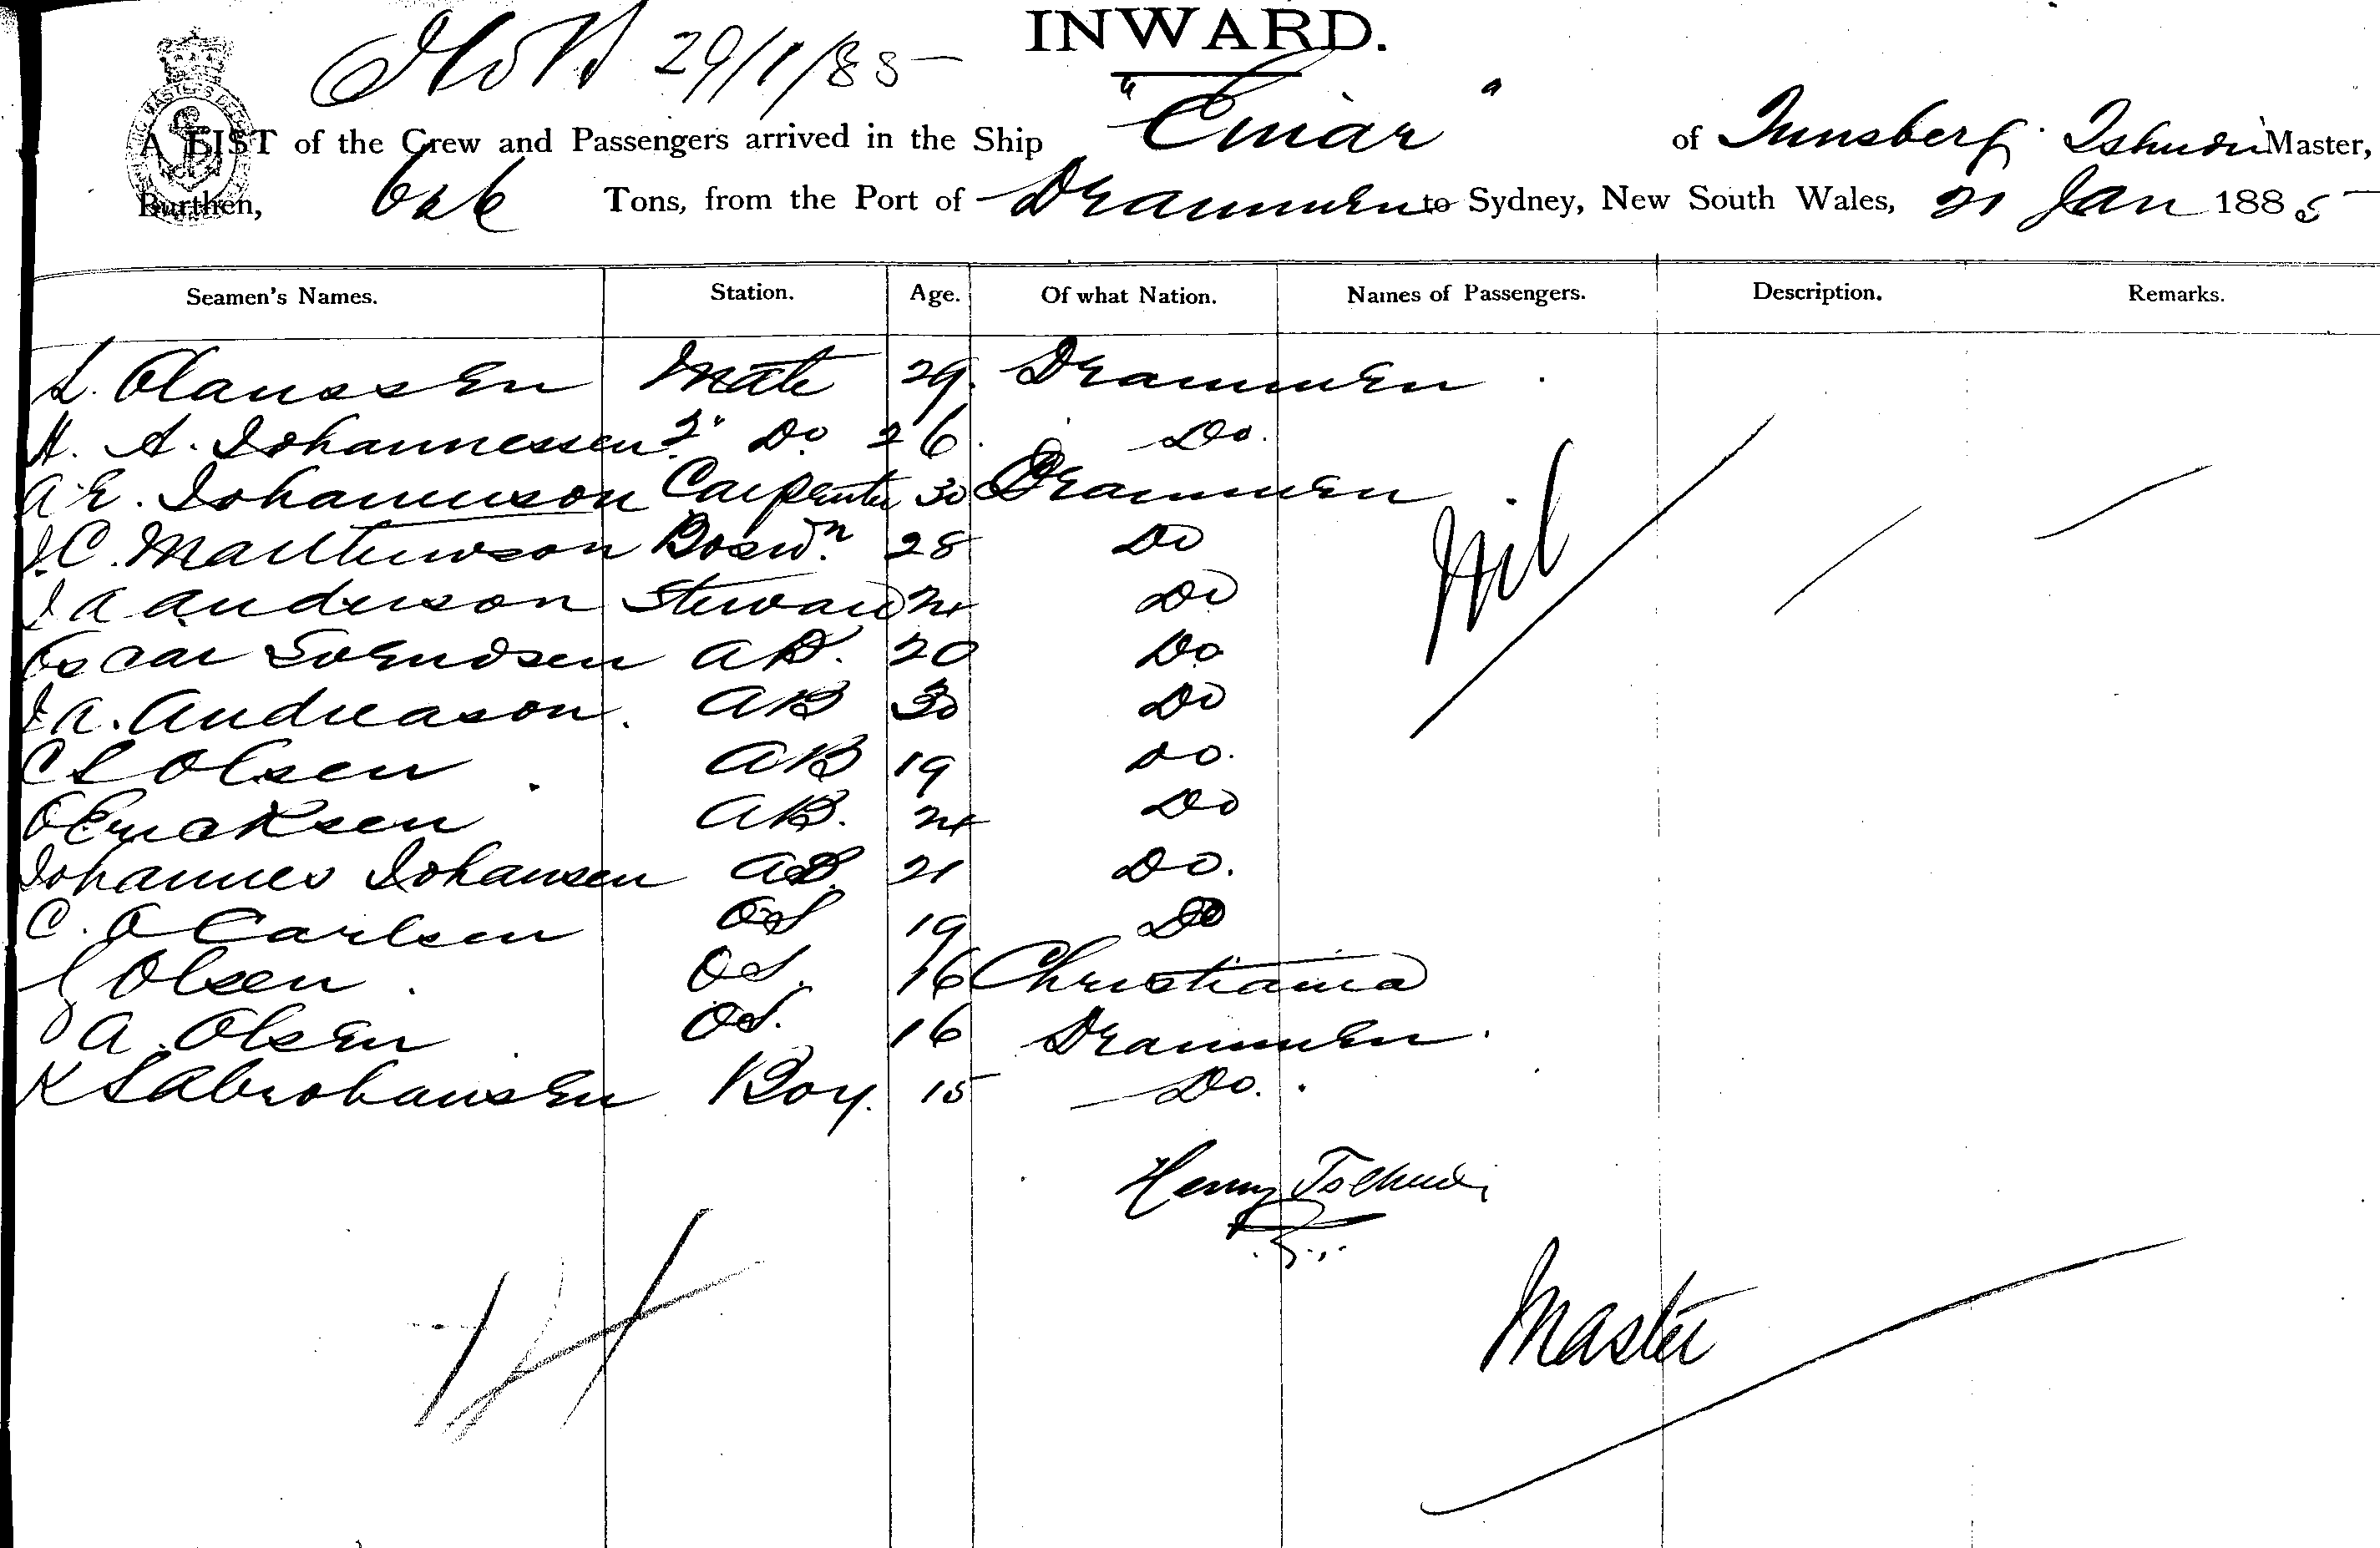 INWARD.
29/1/85
A LIST of the Crew and Passengers arrived in the Ship "Einar" of Tunsberg Tshudi Master,
Burthen, 626 Tons, from the Port of Drammen to Sydney, New South Wales, 21 Jan 1885
Seamen's Names. Station. Age. Of what Nation. Names of Passengers. Description. Remarks.
L. Olaussen Mate 29. Drammen
H. A. Johannessen 2" Do 26. Do. Nil
A E. Johannson Carpenter 30 Drammen
J. C. Matthewson Boswn. 28 Do
J A Anderson Steward 24 Do
Oscar Svendsen AB. 20 Do
J A. Andreason. AB 30 Do
C L Olsen AB 19 Do.
O Ericksen AB. 24 Do
Johannes Johansen AB. 21 Do.
C. O Carlsen OS 19 Do
Olsen. OS. 16 Christiania
A. Olsen OS. 16 Drammen.
K S Abrohansen Boy. 15 Do.
Henry Tschudi
Master
14